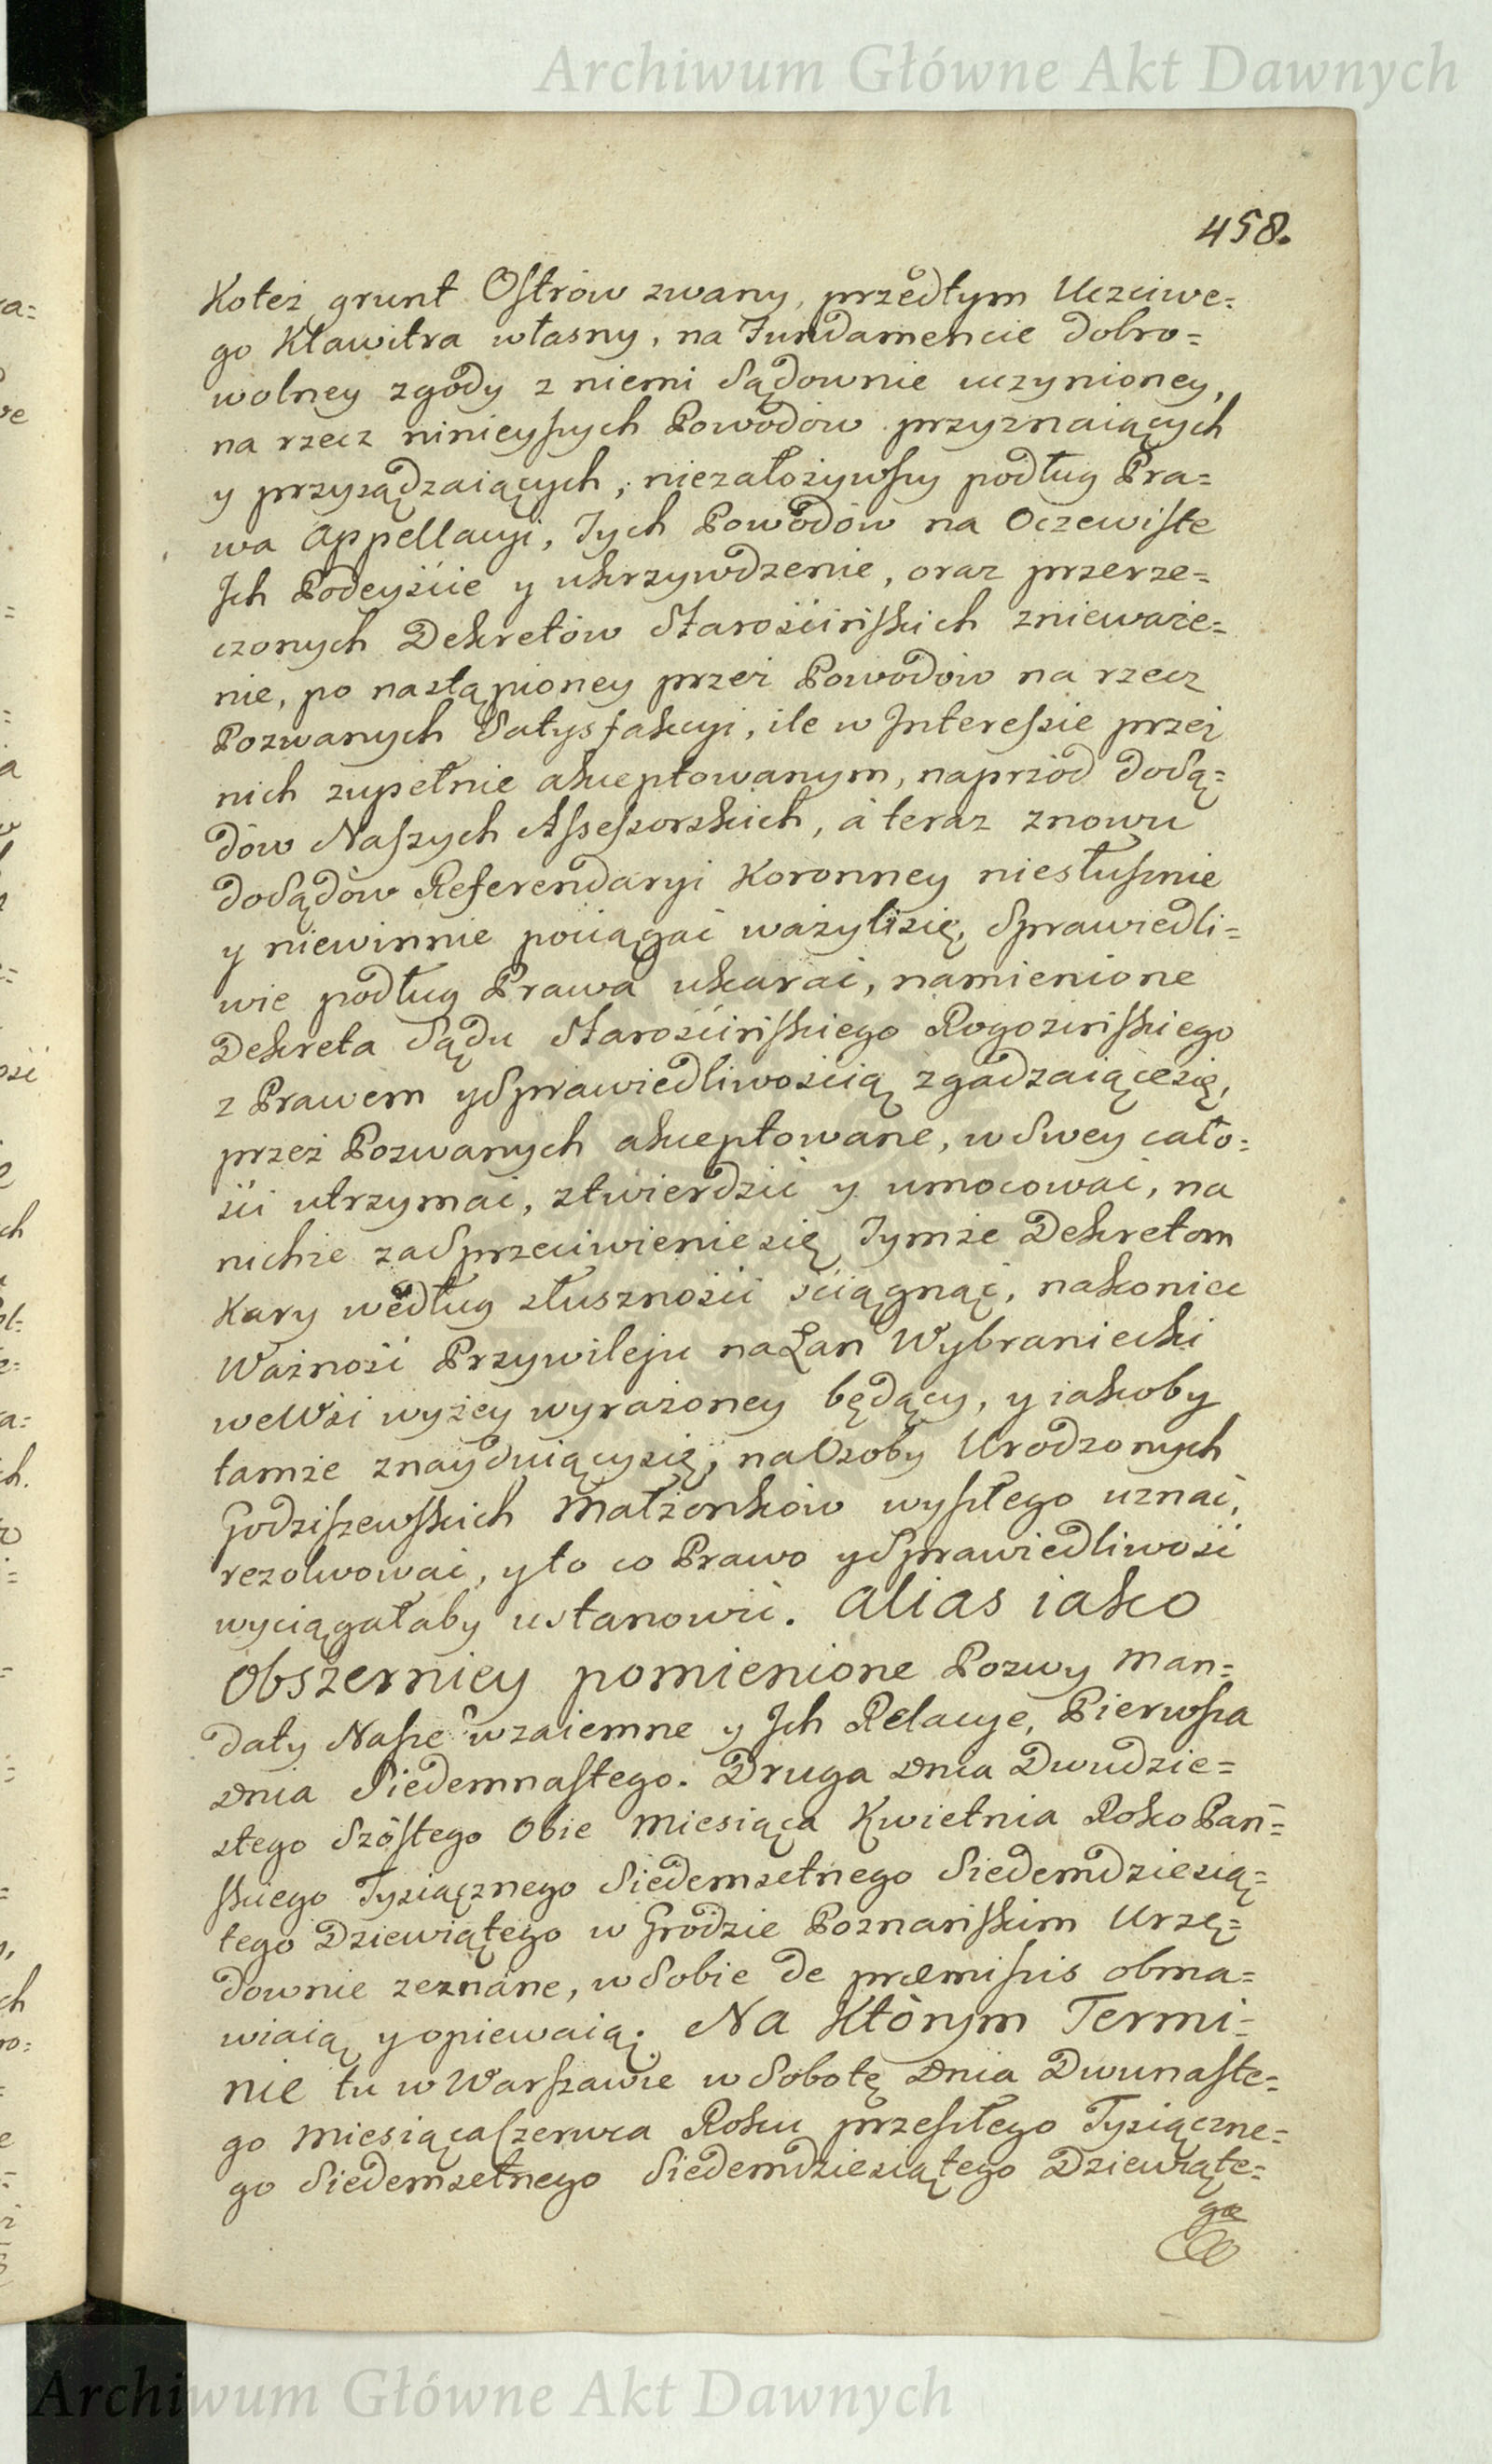 Archiwum Główne Akt Dawnych
458.
Koteż grunt Ostrów zwany, przedtym Uczciwe=
go Kławitra własny, na Fundamencie dobro=
wolney zgody z niemi Sądownie uczynioney,
na rzecz ninieyszych Powodów przyznaiących
y przysądzaiących, niezałożywszy podług Pra=
wa Appellacyi, Tych Powodów na Oczewiste
Ich Podeyście y ukrzywdzenie, oraz przerze=
czonych Dekretów Starościńskich znieważe=
nie, po nastąpioney przez Powodów na rzecz
Pozwanych Satysfakcyi, ile w Interessie przez
nich zupełnie akceptowanym, naprzód doSą=
dów Naszych Assessorskich, á teraz znowu
doSądów Referendaryi Koronney niesłusznie
y niewinnie pociągać ważylisię, Sprawiedli=
wie podług Prawa ukarać, namienione
Dekreta Sądu Starościńskiego Rogozińskiego
z Prawem ySprawiedliwością zgadzaiącesię,
przez Pozwanych akceptowane, wSwey cało=
ści utrzymać, ztwierdzić y umocować, na
nichże zaSprzeciwieniesię Tymże Dekretom
Kary według słuszności ściągnąć, nakoniec
Ważność Przywileju naŁan Wybraniecki
weWsi wyżey wyrażoney będący, y iakoby
tamże znayduiącysię, naOsoby Urodzonych
Godziszewskich Małżonków wyszłego uznać,
rezolwować, yto co Prawo ySprawiedliwość
wyciągałaby ustanowić. Alias iako
Obszerniey pomienione Pozwy Man=
daty Nasze wzaiemne y Ich Relacye, Pierwsza
Dnia Siedemnastego. Druga Dnia Dwudzie=
stego Szóstego Obie Miesiąca Kwietnia Roko Pań=
skiego Tysiącznego Siedemsetnego Siedemdziesią=
tego Dziewiątego w Grodzie Poznańskim Urzę=
downie zeznane, wSobie de præmissis obma=
wiaią yopiewaią. Na Którym Termi=
nie tu w Warszawie w Sobotę Dnia Dwunaste=
go MiesiącaCzerwca Roku przeszłego Tysiączne=
go Siedemsetnego Siedemdziesiątego Dziewiąte=
go
Archiwum Główne Akt Dawnych